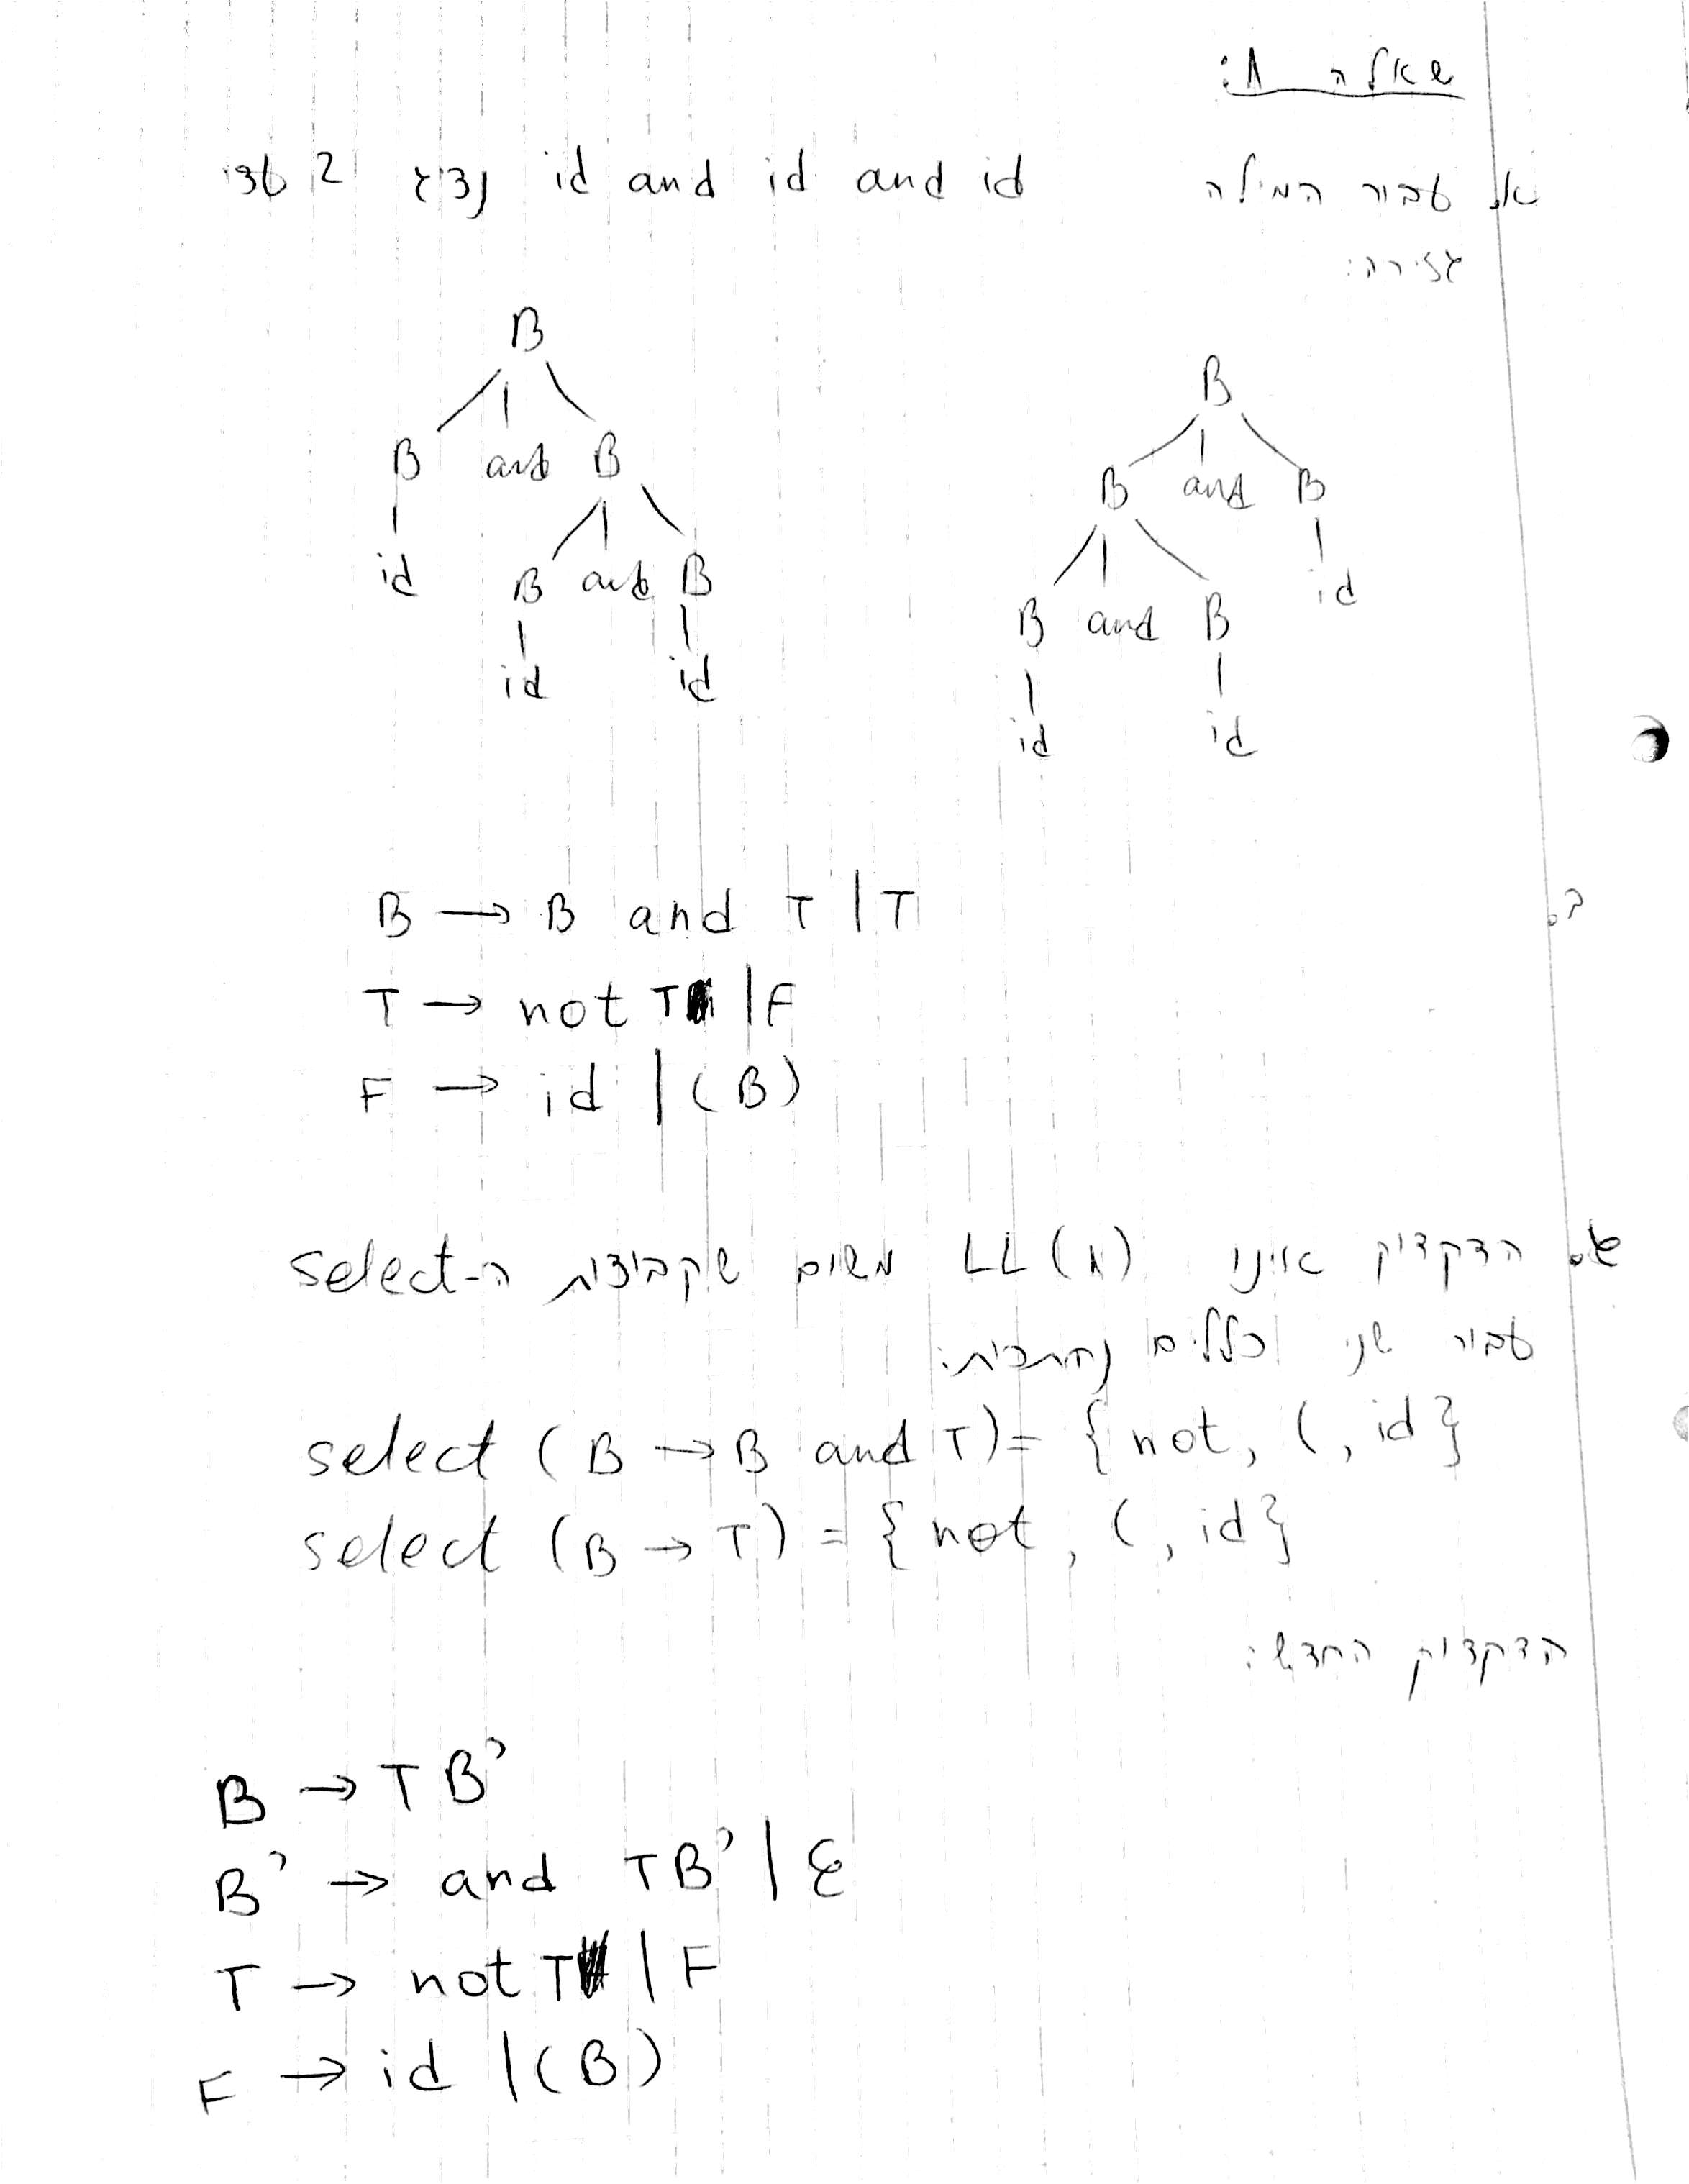 שאלה 1:
א. עבור המילה id and id and id נציג 2 עצי
גזירה:
B
B and B
id B and B
id id
B
B and B
B and B id
id id
ב. B → B and T | T
T → not T | F
F → id | (B)
ג. הדקדוק אינו LL(1) משום שקבוצות ה-select
עבור שני כללים נחתכות:
select (B → B and T) = {not, (, id}
select (B → T) = {not, (, id}
הדקדוק החדש:
B → T B'
B' → and T B' | ε
T → not T | F
F → id | (B)